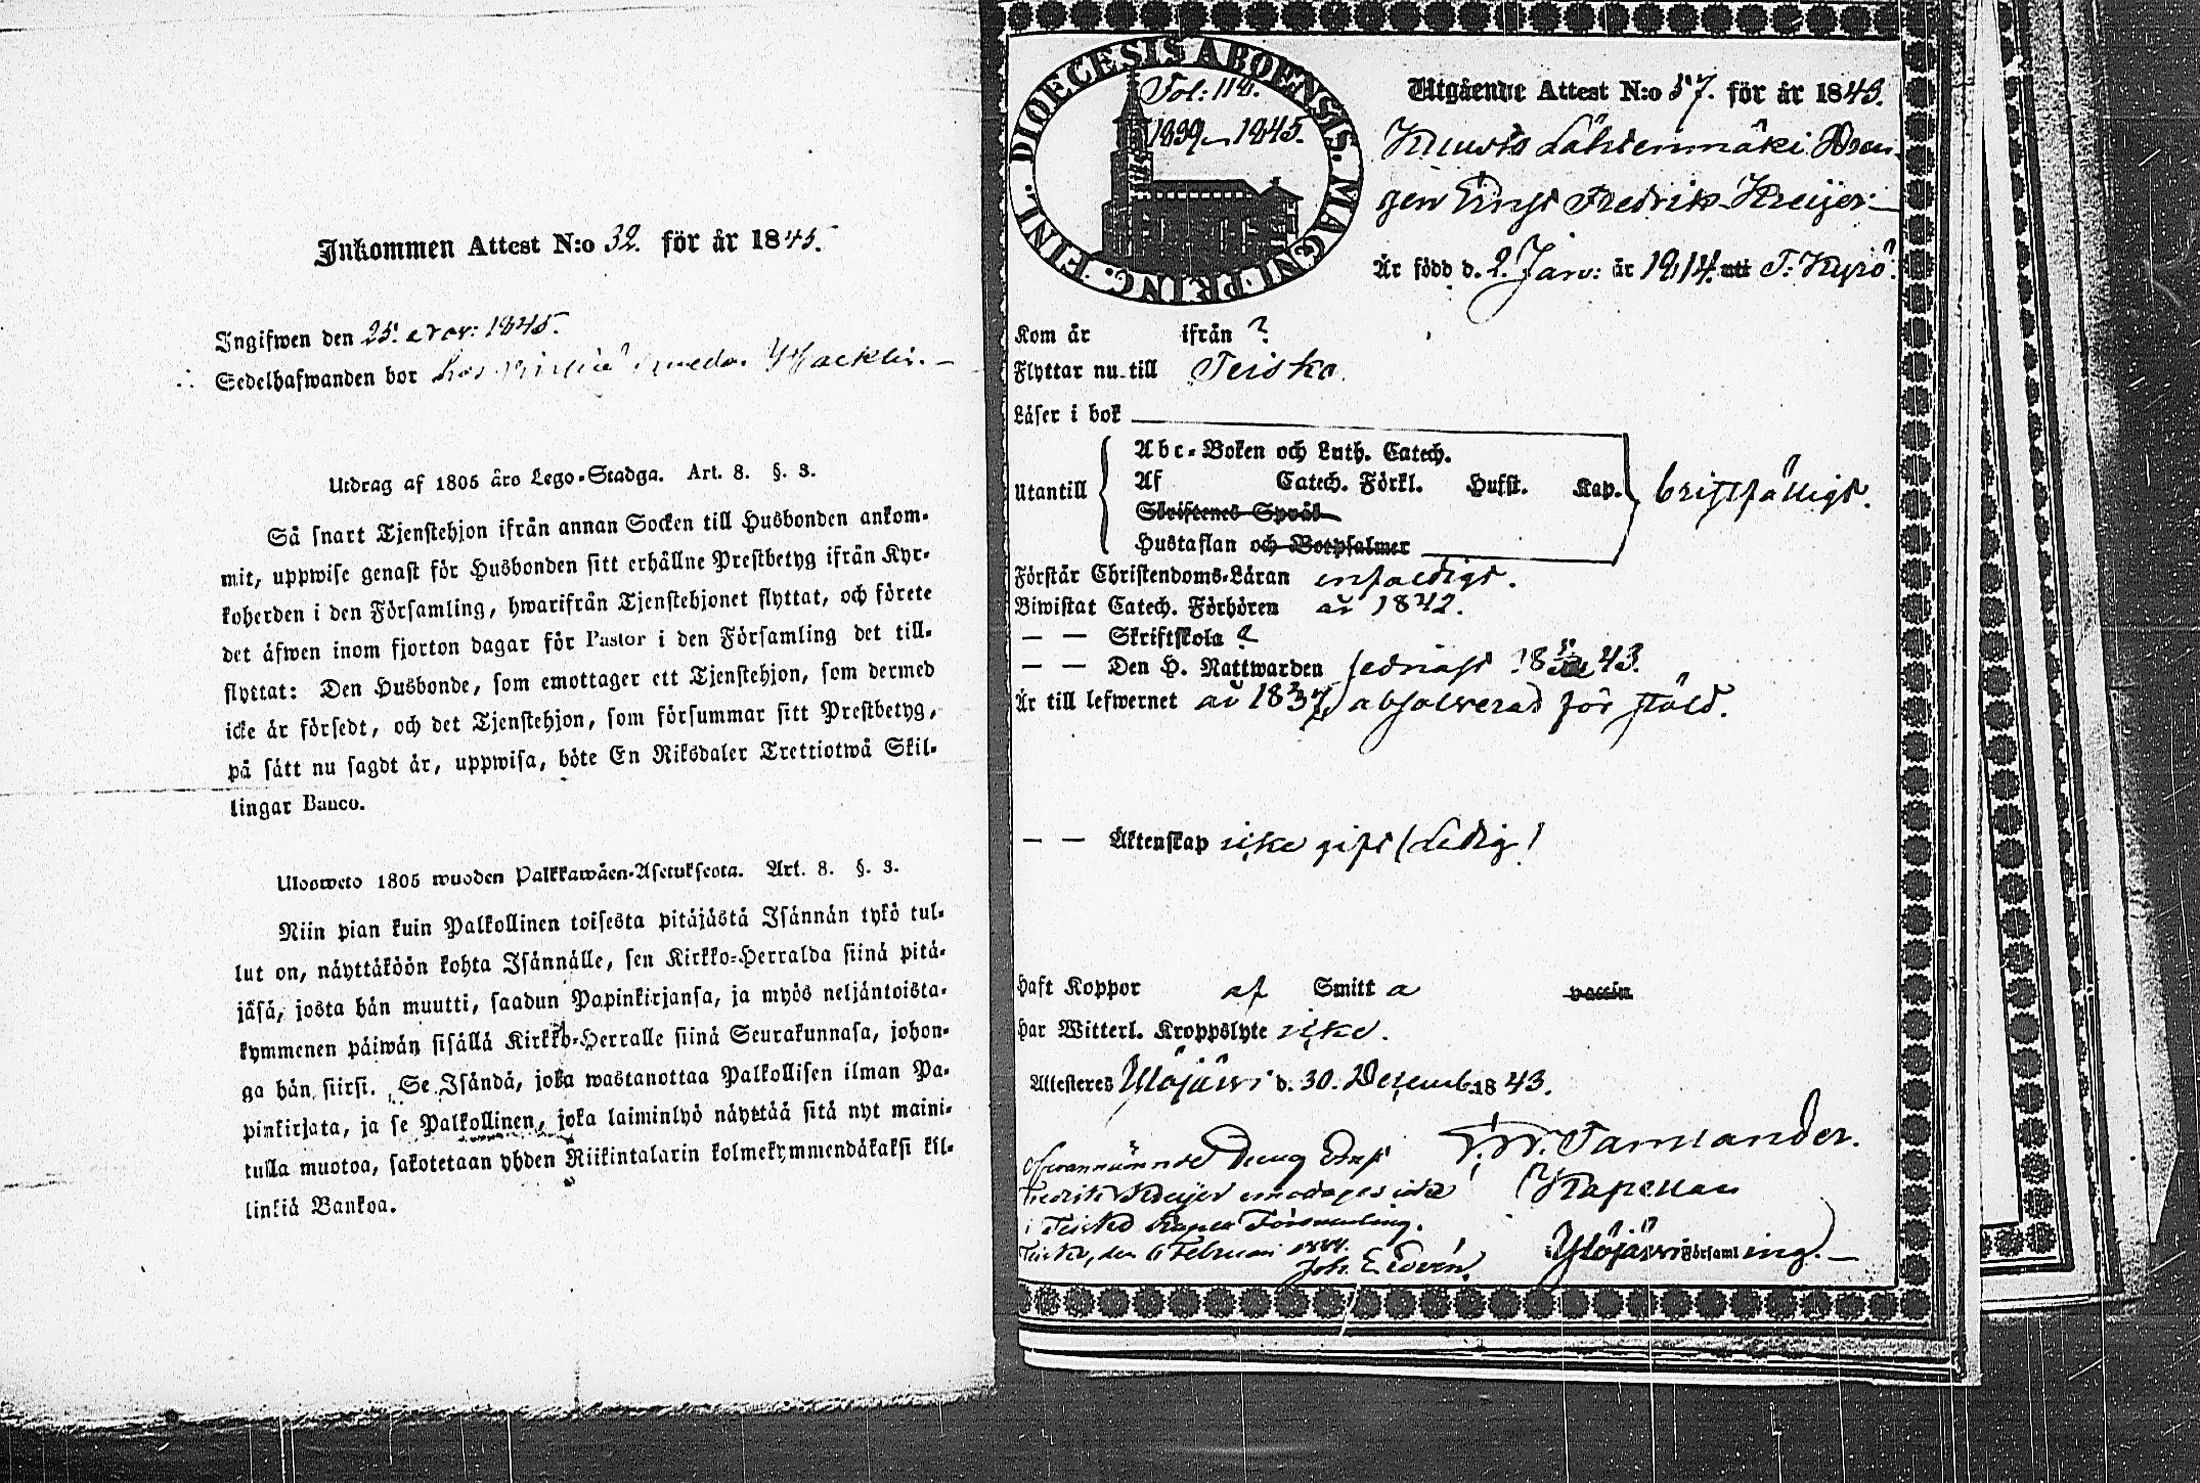 Inkommen Attest N:o 32. för år 1845.
Ingifwen den 25. Nov: 1845.
Sedelhafwanden bor hos
Utdrag af 1805 års Lego-Stadga. Art. 8. §. 3.
Så snart Tjenstehjon ifrån annan Socken till Husbonden ankom-
mit, uppwise genast för Husbonden sitt erhållne Prestbetyg ifrån Kyr-
koherden i den Församling, hwarifrån Tjenstehjonet flyttat, och förete
det äfwen inom fjorton dagar för Pastor i den Församling det till-
flyttat: Den Husbonde, som emottager ett Tjenstehjon, som dermed
icke är försedt, och det Tjenstehjon, som försummar sitt Prestbetyg,
på sätt nu sagdt är, uppwisa, böte En Riksdaler Trettiotwå Skil-
lingar Banco.
Ulosweto 1805 wuoden Palkkawäen-Asetuksesta. Art. 8. §. 3.
Niin pian kuin Palkollinen toisesta pitäjästä Isännän tykö tul-
lut on, näyttäköön kohta Isännälle, sen Kirkko-Herralda siinä pitä-
jäsä, josta hän muutti, saadun Papinkirjansa, ja myös neljäntoista-
kymmenen päiwän sisällä Kirkko-Herralle siinä Seurakunnasa, johon-
ga hän siirsi. Se Isändä, joka wastanottaa Palkollisen ilman Pa-
pinkirjata, ja se Palkollinen, joka laiminlyö näyttää sitä nyt maini-
tulla muotoa, sakotetaan yhden Riikintalarin kolmekymmendäkaksi kil-
linkiä Bankoa.
DIOECESIS ABOENSIS. MAGNI PRINC. FINL.
Fol: 118.
1839–1845.
Utgående Attest N:o 57. för år 1843.
Knuuts Lähtenmäki Dren-
gen Ernst Fredrik Kreijer
Är född d. 2. Janu: år 1814. uti T: Kyrö.
Kom år ifrån ?
Flyttar nu till Teisko.
Läser i bok
Utantill
Abc-Boken och Luth. Catech.
Af Catech. Förkl. Hufst. Kap.
Skriftenes Språk
Hustaflan och Botpsalmer
bristfälligt.
Förstår Christendoms-Läran enfaldigt.
Biwistat Catech. Förhören år 1842.
— — Skriftskola ?
— — Den H. Nattwarden sednast 18 43.
Är till lefwernet år 1837 absolverad för stöld.
— — Äktenskap icke gift (Ledig)
Haft Koppor af Smitta vaccin
Har Witterl. Kroppslyte icke.
Attesteras Ylöjärwi d. 30. Decemb. 1843.
Ofwannämnde Dreng Ernst
Fredrik Kreijer emottages
i Teisko Kapels Församling.
Teisko, den 6 Februari 1844.
Joh. E. Edvén.
Kapellan
i Ylöjärwi Församling.